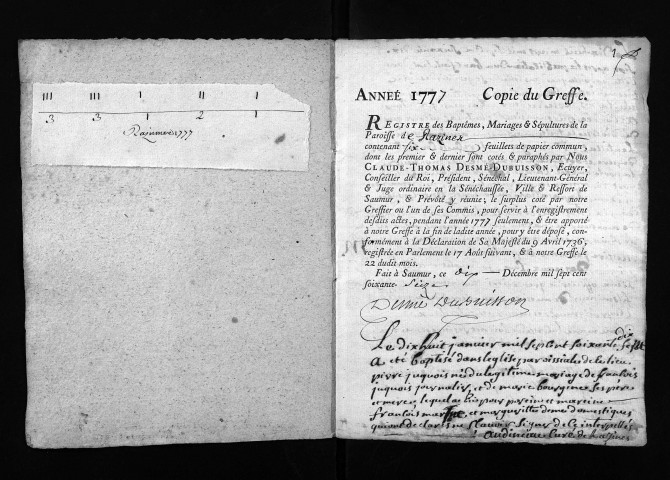 III III I II I
3 3 1 2 1
1777
1
ANNEÉ 1777 Copie du Greffe.
REGISTRE des Baptêmes, Mariages & Sépultures de la
Paroisse de Razines
contenant six feuillets de papier commun,
dont les premier & dernier sont cotés & paraphés par Nous
CLAUDE-THOMAS DESMÉ-DUBUISSON, Ecuyer,
Conseiller du Roi, Président, Sénéchal, Lieutenant-Général
& Juge ordinaire en la Sénéchaussée, Ville & Ressort de
Saumur, & Prévôté y réunie; le surplus coté par notre
Greffier ou l'un de ses Commis, pour servir à l'enregistrement
desdits actes, pendant l'année 1777 seulement, & être apporté
à notre Greffe à la fin de ladite année, pour y être déposé, con-
formément à la Déclaration de Sa Majesté du 9 Avril 1736,
registrée en Parlement le 17 Août suivant, & à notre Greffe le
22 dudit mois.
Fait à Saumur, ce dix Décembre mil sept cent
soixante seize
Desmé Dubuisson
Le dix huit janvier mil sept cent soixante dix sept
A eté baptisé dans leglise paroissiale de ce lieu
pierre juquois né du legitime mariage de francois
juquois journalier et de marie bourgine ses pere
et mere lequel a eu pour parein et mareine
francois et marguerite domestiques
qui ont declaré ne scavoir signer de ce interpellés
Audineau curé de razines